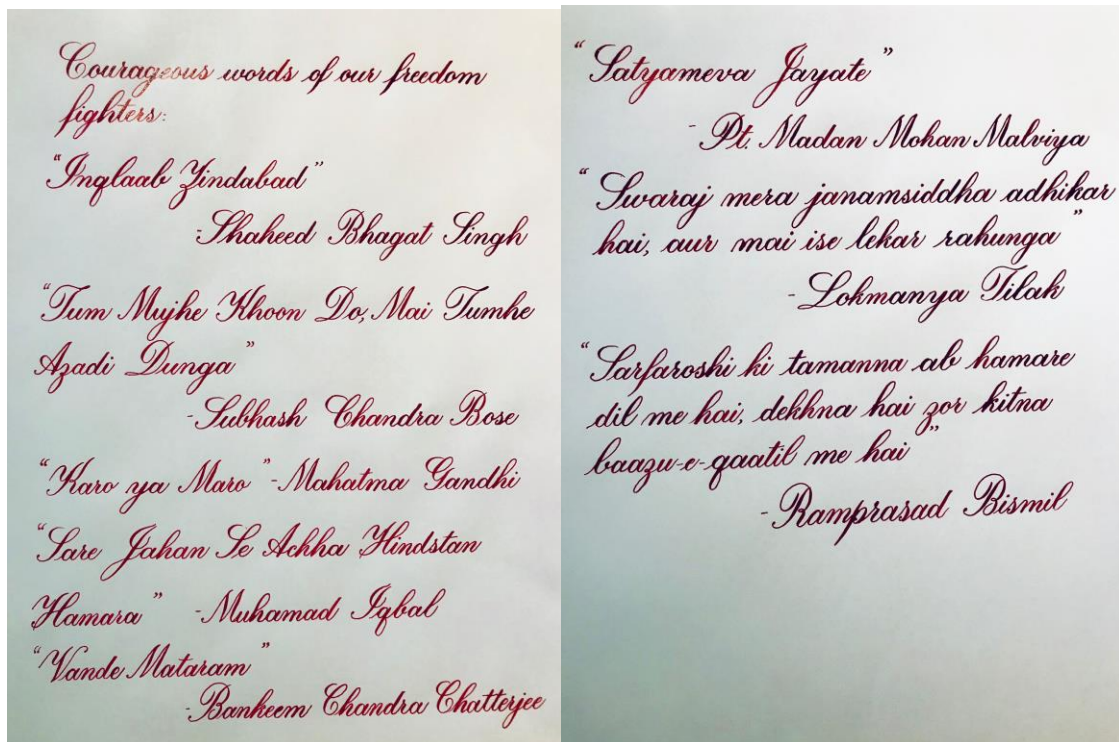 Courageous words of our freedom
fighters:
"Inqlaab Zindabad"
-Shaheed Bhagat Singh
"Tum Mujhe Khoon Do, Mai Tumhe
Azadi Dunga"
-Subhash Chandra Bose
"Karo ya Maro" -Mahatma Gandhi
"Sare Jahan Se Achha Hindstan
Hamara" -Muhamad Iqbal
"Vande Mataram"
-Bankeem Chandra Chatterjee
"Satyameva Jayate"
-Pt. Madan Mohan Malviya
"Swaraj mera janamsiddha adhikar
hai, aur mai ise lekar rahunga"
-Lokmanya Tilak
"Sarfaroshi ki tamanna ab hamare
dil me hai, dekhna hai zor kitna
baazu-e-qaatil me hai"
-Ramprasad Bismil